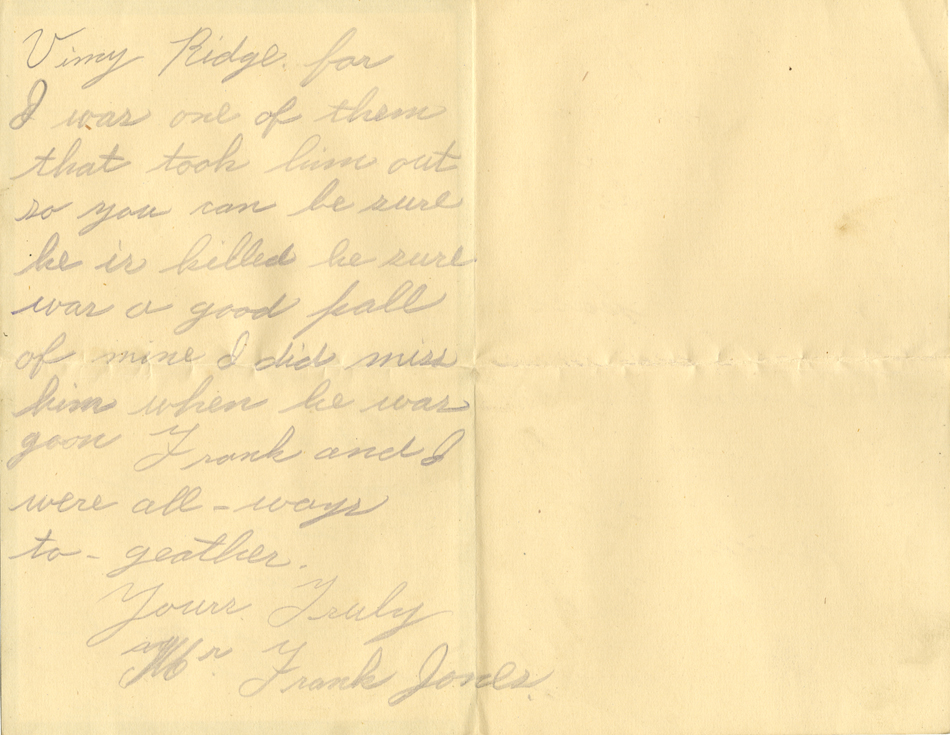 Vimy Ridge for
I was one of them
that took him out
so you can be sure
he is killed he sure
was a good pall
of mine I did miss
him when he was
goon Frank and I
were all-ways
to-geather.
Yours Truly
Mr. Frank Jones.